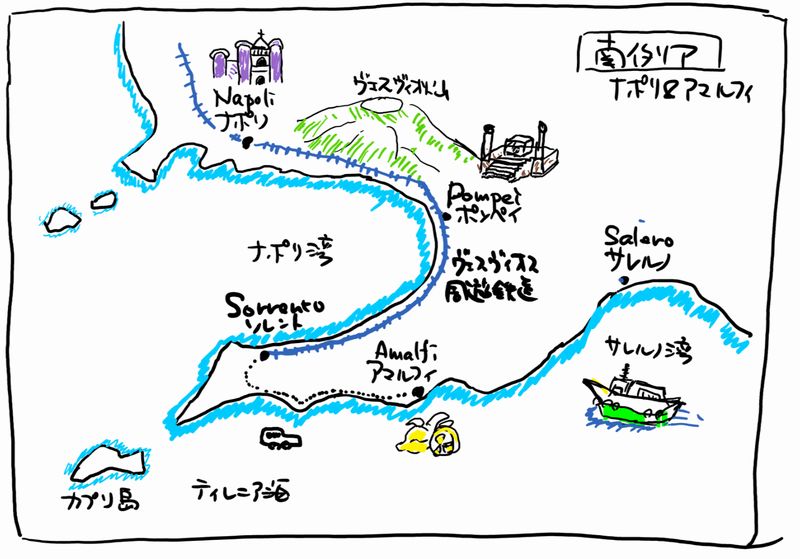 南イタリア
ナポリ&アマルフィ
Napoli
ナポリ
ヴェスヴィオ山
Pompei
ポンペイ
ナポリ湾
ヴェスヴィオス
周遊鉄道
Salero
サレルノ
Sorrento
ソレント
Amalfi
アマルフィ
サレルノ湾
カプリ島
ティレニア海